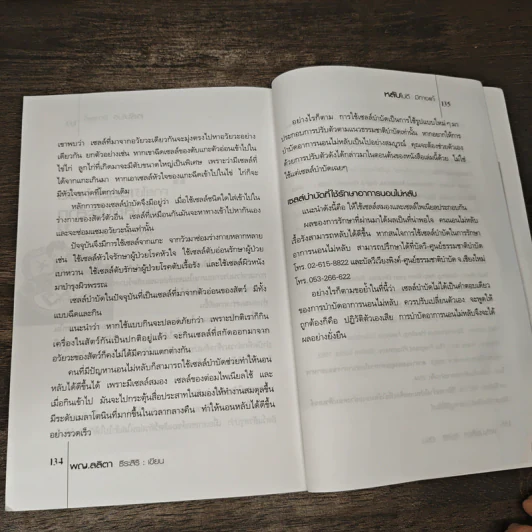 เขาพบว่า เซลล์ที่มาจากอวัยวะเดียวกันจะมุ่งตรงไปหาอวัยวะอย่าง
เดียวกัน ยกตัวอย่างเช่น หากเราฉีดเซลล์ของตับแกะตัวอ่อนเข้าไปใน
ไข่ไก่ ลูกไก่ที่เกิดมาจะมีตับขนาดใหญ่เป็นพิเศษ เพราะว่ามีเซลล์ที่
ได้จากแกะเกินมา หากเอาเซลล์หัวใจของแกะฉีดเข้าไปในไข่ ไก่ก็จะ
มีหัวใจขนาดที่โตกว่าเดิม
หลักการของเซลล์บำบัดจึงมีอยู่ว่า เมื่อใช้เซลล์ชนิดใดใส่เข้าไปใน
ร่างกายของสัตว์ตัวอื่น เซลล์ที่เหมือนกันมันจะหาทางเข้าไปหากันเอง
และจะซ่อมแซมอวัยวะนั้นเท่านั้น
ปัจจุบันจึงมีการใช้เซลล์จากแกะ จากวัวมาซ่อมร่างกายหลากหลาย
เช่น ใช้เซลล์หัวใจรักษาผู้ป่วยโรคหัวใจ ใช้เซลล์ตับอ่อนรักษาผู้ป่วย
เบาหวาน ใช้เซลล์ตับรักษาผู้ป่วยโรคตับเรื้อรัง และใช้เซลล์ผิวหนัง
มาบำรุงผิวพรรณ
เซลล์บำบัดในปัจจุบันที่เป็นเซลล์ที่มาจากตัวอ่อนของสัตว์ มีทั้ง
แบบฉีดและกิน
แนะนำว่า หากใช้แบบกินจะปลอดภัยกว่า เพราะปกติเราก็กิน
เครื่องในสัตว์กันเป็นปกติอยู่แล้ว จะกินเซลล์ที่สกัดออกมาจาก
อวัยวะของสัตว์ก็คงไม่ได้มีความแตกต่างกัน
คนที่มีปัญหานอนไม่หลับก็สามารถใช้เซลล์บำบัดช่วยทำให้นอน
หลับได้ดีขึ้นได้ เพราะมีเซลล์สมอง เซลล์ของต่อมไพเนียลใช้ และ
เมื่อกินเข้าไป มันจะไปกระตุ้นสื่อประสาทในสมองให้ทำงานสมดุลขึ้น
มีระดับเมลาโตนินที่มากขึ้นในเวลากลางคืน ทำให้นอนหลับได้ดีขึ้น
อย่างรวดเร็ว
134 พญ.ลลิตา ธีระสิริ : เขียน
หลับไม่ดี : มีทางแก้ 135
อย่างไรก็ตาม การใช้เซลล์บำบัดเป็นการใช้รูปแบบใหม่ๆ มา
ประกอบการปรับตัวตามแนวธรรมชาติบำบัดเท่านั้น หากอยากให้การ
บำบัดอาการนอนไม่หลับเป็นไปอย่างสมบูรณ์ คุณจะต้องช่วยตัวเอง
ด้วยการปรับตัวดังได้กล่าวมาในตอนต้นของหนังสือเล่มนี้ด้วย ไม่ใช่
ใช้แต่เซลล์บำบัดเฉยๆ
เซลล์บำบัดที่ใช้รักษาอาการนอนไม่หลับ
แนะนำดังนี้คือ ให้ใช้เซลล์สมองและเซลล์ไพเนียลประกอบกัน
ผลของการรักษาที่ผ่านมาได้ผลเป็นที่น่าพอใจ คนนอนไม่หลับ
เรื้อรังสามารถหลับได้ดีขึ้น หากสนใจการใช้เซลล์บำบัดในการรักษา
อาการนอนไม่หลับ สามารถปรึกษาได้ที่บัลวี-ศูนย์ธรรมชาติบำบัด
โทร. 02-615-8822 และบัลวีเวียงพิงค์-ศูนย์ธรรมชาติบำบัด จ.เชียงใหม่
โทร. 053-266-622
อย่างไรก็ตามขอย้ำในที่นี้ว่า เซลล์บำบัดไม่ได้เป็นคำตอบเดียว
ของการบำบัดอาการนอนไม่หลับ ควรปรับเปลี่ยนตัวเอง จะพูดให้
ถูกต้องก็คือ ปฏิวัติตัวเองเสีย การบำบัดอาการนอนไม่หลับจึงจะได้
ผลอย่างยั่งยืน